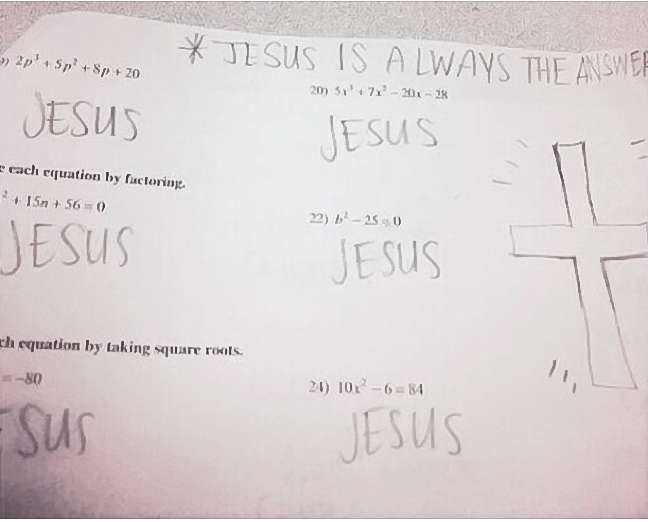 * JESUS IS ALWAYS THE ANSWER
9) 2p³ + 5p² + 8p + 20
20) 5x³ + 7x² − 20x − 28
JESUS
JESUS
e each equation by factoring.
² + 15n + 56 = 0
22) b² − 25 = 0
JESUS
JESUS
ch equation by taking square roots.
= −80
24) 10x² − 6 = 84
ESUS
JESUS